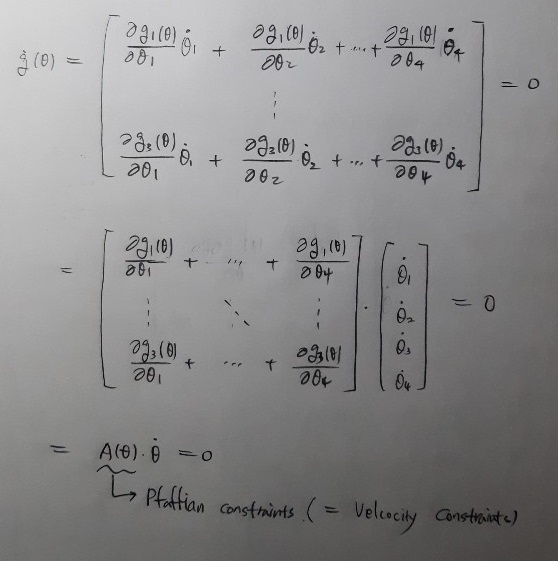 ġ(θ) = [ ∂g₁(θ)/∂θ₁ θ̇₁ + ∂g₁(θ)/∂θ₂ θ̇₂ + ... + ∂g₁(θ)/∂θ₄ θ̇₄
⋮
∂g₃(θ)/∂θ₁ θ̇₁ + ∂g₃(θ)/∂θ₂ θ̇₂ + ... + ∂g₃(θ)/∂θ₄ θ̇₄ ] = 0
= [ ∂g₁(θ)/∂θ₁ + ... + ∂g₁(θ)/∂θ₄
⋮ ⋱ ⋮
∂g₃(θ)/∂θ₁ + ... + ∂g₃(θ)/∂θ₄ ] · [ θ̇₁ θ̇₂ θ̇₃ θ̇₄ ] = 0
= A(θ)·θ̇ = 0
↳ Pfaffian constraints. (= Velcocity Constraints)